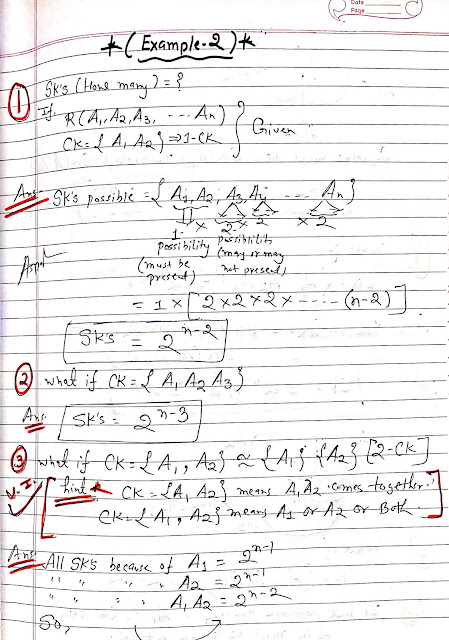 Date
Page
*( Example-2 )*
① SK's (How many) = ?
If R(A1, A2, A3, --- An)
CK = { A1 A2 } ⇒ 1-CK } Given
Ans SK's possible = { A1, A2, A3, A4 ---- An }
1 × 2 × 2 × 2
possibility possiblility
(must be (may or may
present) not present)
= 1 × [ 2×2×2× ---- (n-2) ]
SK's = 2^n-2
② what if CK = { A1 A2 A3 }
Ans. SK's = 2^n-3
③ what if CK = { A1, A2 } ≈ { A1 } { A2 } [2-CK]
V.I. hint CK = { A1 A2 } means A1 A2 comes together.
CK = { A1, A2 } means A1 or A2 or Both
Ans All SK's because of A1 = 2^n-1
" " " " A2 = 2^n-1
" " " " A1 A2 = 2^n-2
So,